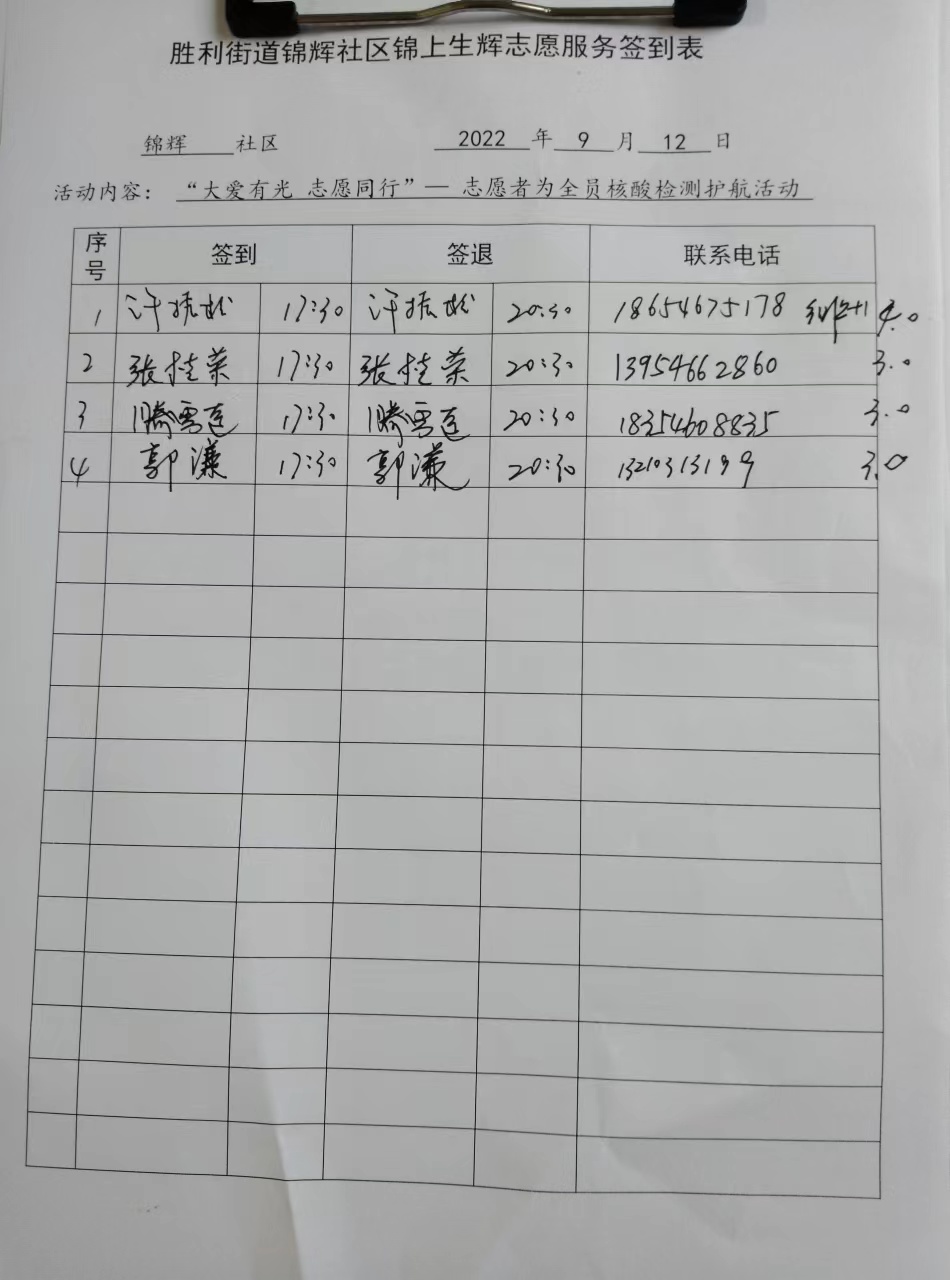 胜利街道锦辉社区锦上生辉志愿服务签到表
锦辉 社区 2022 年 9 月 12 日
活动内容： “大爱有光 志愿同行”— 志愿者为全员核酸检测护航活动
序号 签到 签退 联系电话
1 许振松 17:30 许振松 20:30 18654675178 4.0
2 张桂荣 17:30 张桂荣 20:30 13954662860 3.0
3 滕雪莲 17:30 滕雪莲 20:30 18354608835 3.0
4 郭濂 17:30 郭濂 20:30 13210313199 3.0